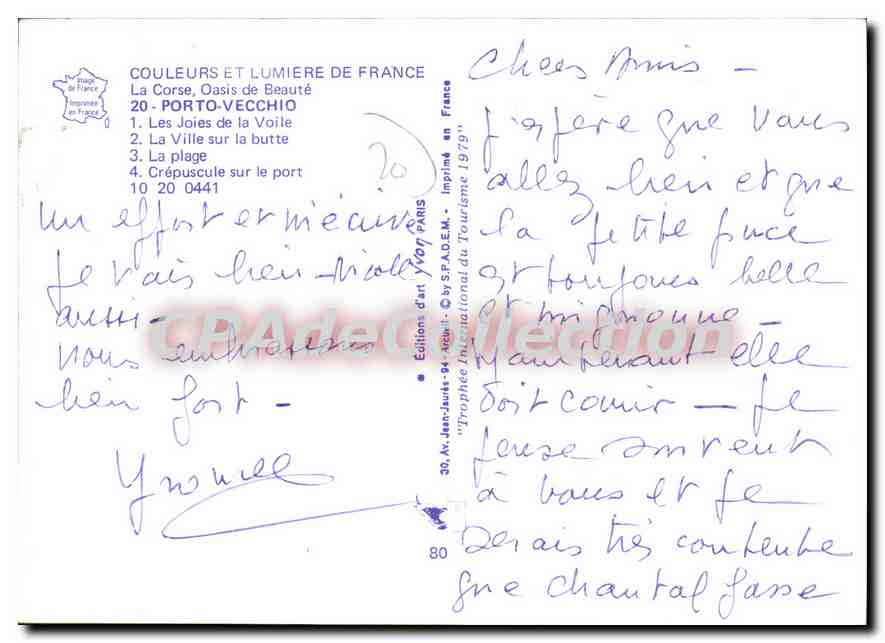 Image
de France
Imprimée
en France
COULEURS ET LUMIERE DE FRANCE
La Corse, Oasis de Beauté
20 - PORTO-VECCHIO
1. Les Joies de la Voile
2. La Ville sur la butte
3. La plage
4. Crépuscule sur le port
10 20 0441
20
Chers Amis -
J'espère que vous
allez bien et que
la petite puce
est toujours belle
et mignonne -
Maintenant elle
doit courir - Je
pense souvent
à vous et je
serais très contente
que Chantal fasse
un effort et m'écrive
Je vais bien - Nicole
aussi -
Nous embrassons
bien fort -
Yvonne
● Éditions d'art yvon PARIS
30, Av. Jean-Jaurès - 94 - Arcueil - © by S.P.A.D.E.M. - Imprimé en France
"Trophée International du Tourisme 1979"
80
CPAdeCollection